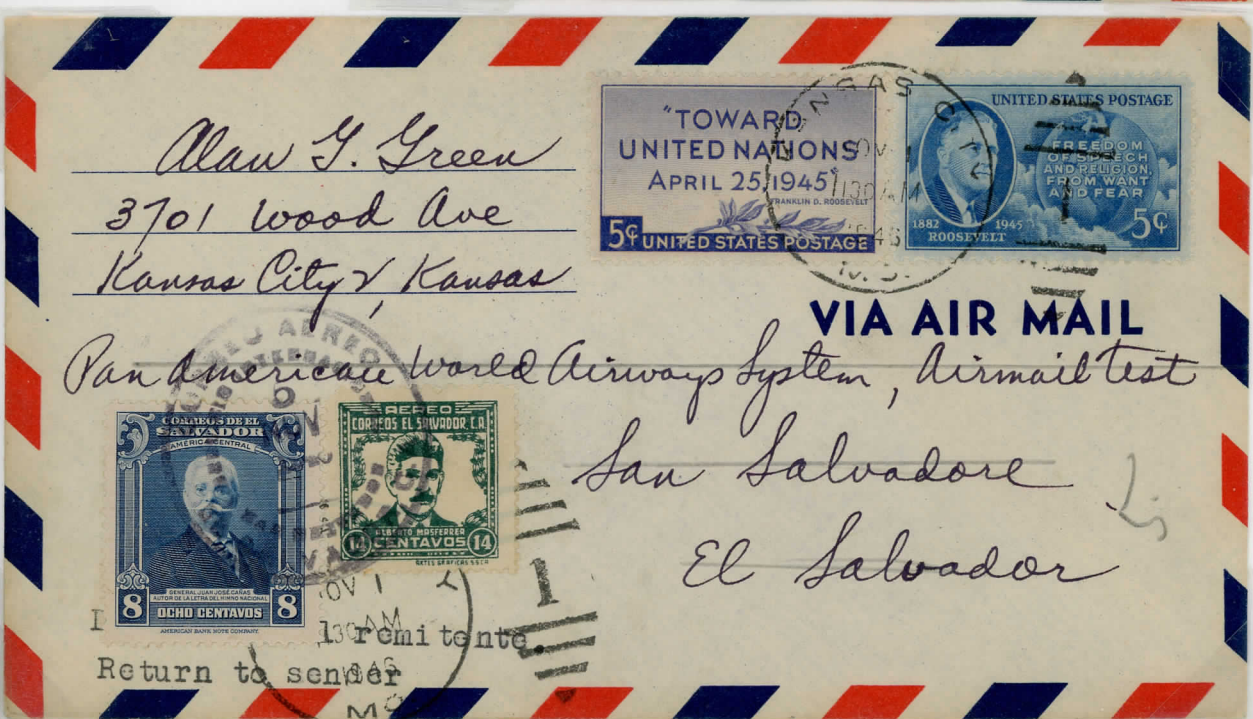 Alan G. Green
3701 Wood Ave
Kansas City, Kansas
"TOWARD
UNITED NATIONS
APRIL 25, 1945"
FRANKLIN D. ROOSEVELT
5¢ UNITED STATES POSTAGE
UNITED STATES POSTAGE
FREEDOM
OF SPEECH
AND RELIGION,
FROM WANT
AND FEAR
1882 1945
ROOSEVELT
5¢
KANSAS CITY
NOV 1
1130 AM
1946
MO.
VIA AIR MAIL
Pan American World Airways System, Airmail test
San Salvadore
El Salvador
CORREO AEREO
CORREOS DE EL
SALVADOR
AMERICA CENTRAL
GENERAL JUAN JOSE CAÑAS
AUTOR DE LA LETRA DEL HIMNO NACIONAL
8 OCHO CENTAVOS 8
AMERICAN BANK NOTE COMPANY
AEREO
CORREOS EL SALVADOR, C.A.
ALBERTO MASFERRER
14 CENTAVOS 14
NOV 1
1130 AM
1946
MO
1
1
l remitente.
Return to sender